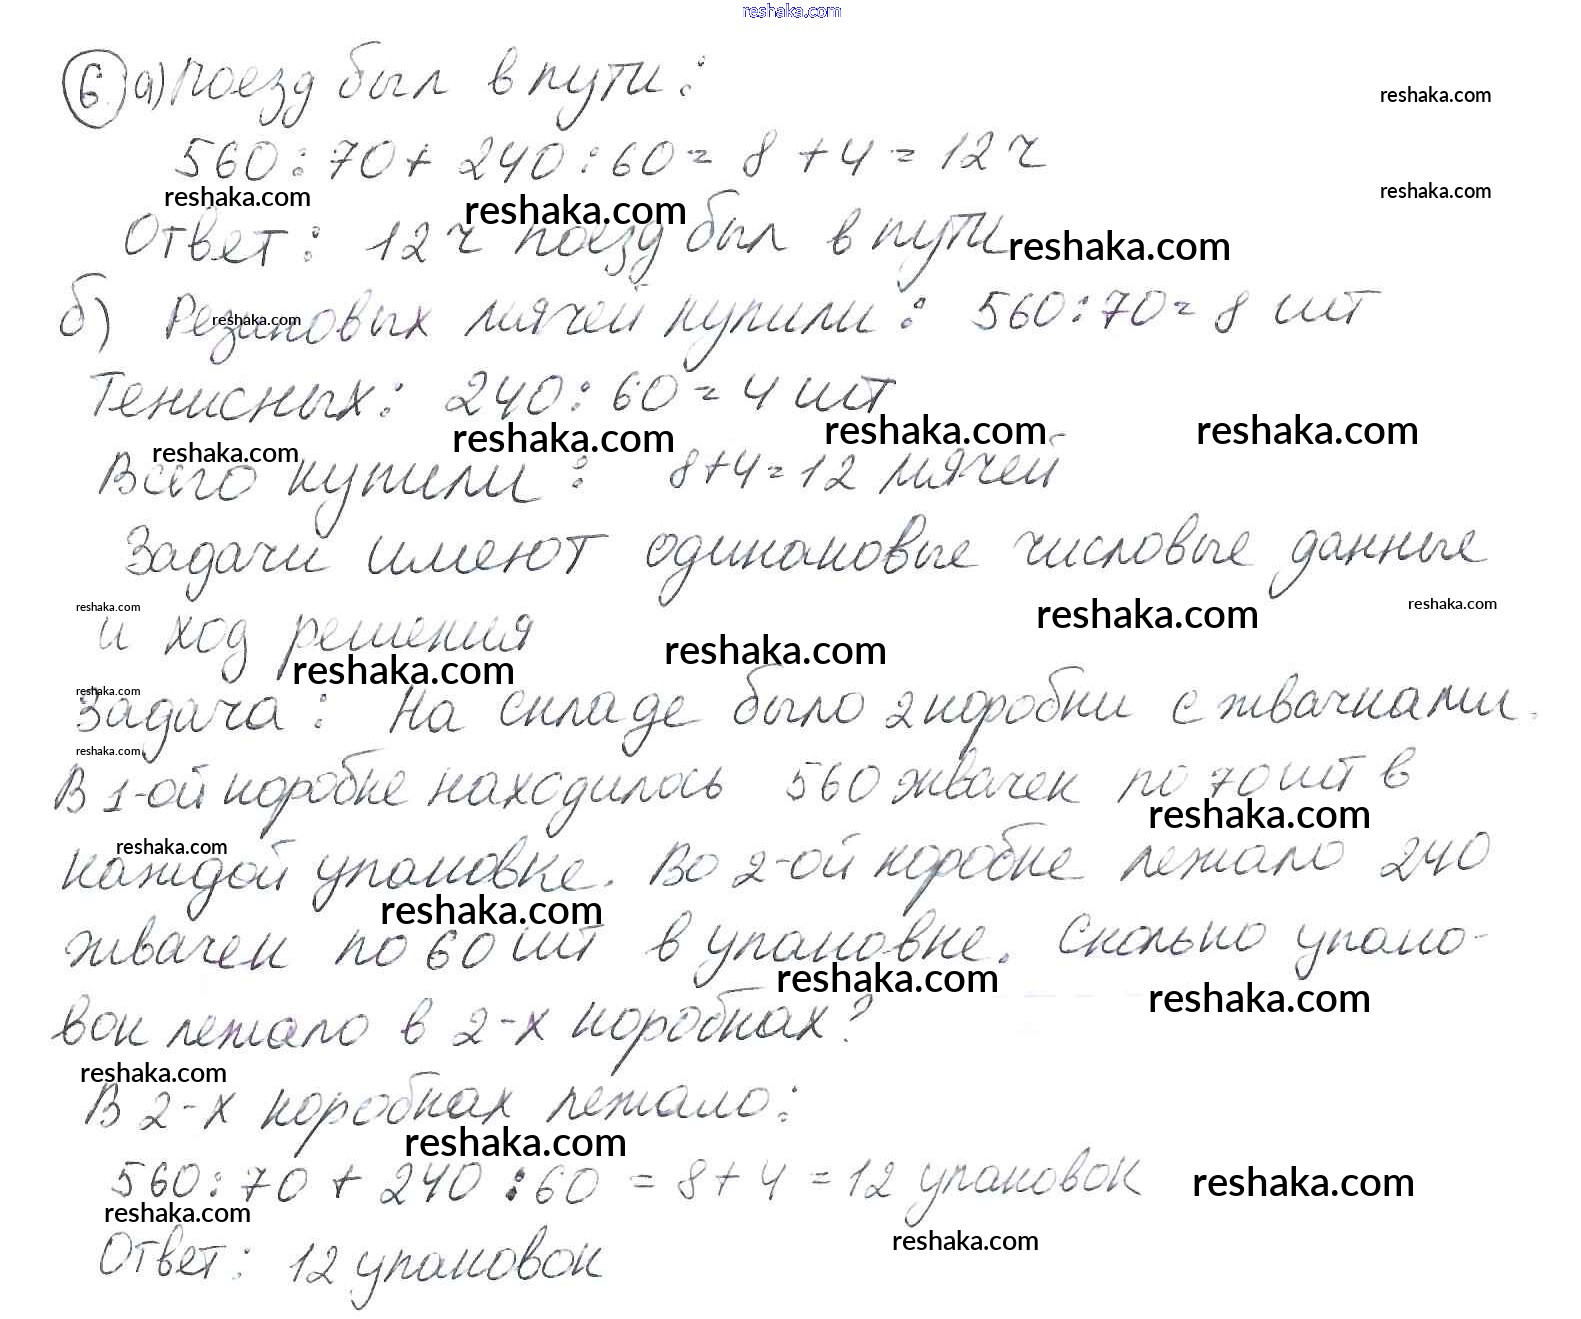 reshaka.com
6 а) Поезд был в пути:
reshaka.com
560 : 70 + 240 : 60 = 8 + 4 = 12 ч
reshaka.com reshaka.com reshaka.com
Ответ: 12 ч поезд был в пути
reshaka.com
б) Резиновых мячей купили: 560 : 70 = 8 шт
reshaka.com
Тенисных: 240 : 60 = 4 шт
reshaka.com reshaka.com reshaka.com reshaka.com
Всего купили: 8 + 4 = 12 мячей
Задачи имеют одинаковые числовые данные
reshaka.com reshaka.com reshaka.com
и ход решения
reshaka.com reshaka.com
reshaka.com
Задача: На складе было 2 коробки с жвачками.
reshaka.com
В 1-ой коробке находилось 560 жвачек по 70 шт в
reshaka.com
reshaka.com
каждой упаковке. Во 2-ой коробке лежало 240
reshaka.com
жвачек по 60 шт в упаковке. Сколько упако-
reshaka.com reshaka.com
вок лежало в 2-х коробках?
reshaka.com
В 2-х коробках лежало:
reshaka.com
560 : 70 + 240 : 60 = 8 + 4 = 12 упаковок
reshaka.com
reshaka.com reshaka.com
Ответ: 12 упаковок